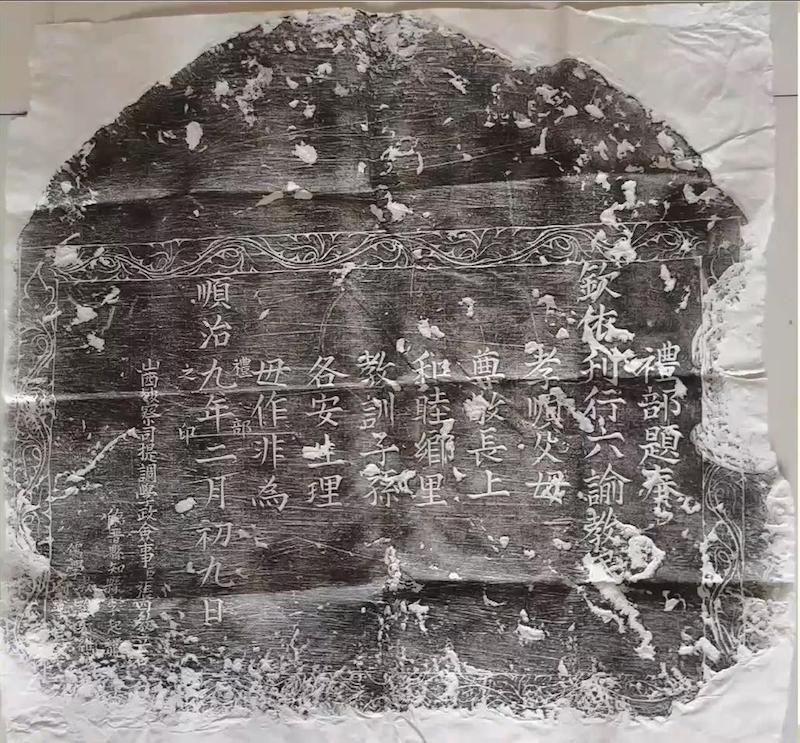 禮部題奏
欽依刊行六諭教
孝順父母
尊敬長上
和睦鄉里
教訓子孫
各安生理
毋作非為
禮部
之印
順治九年二月初九日
山西按察司提調學政僉事
知縣
儒學